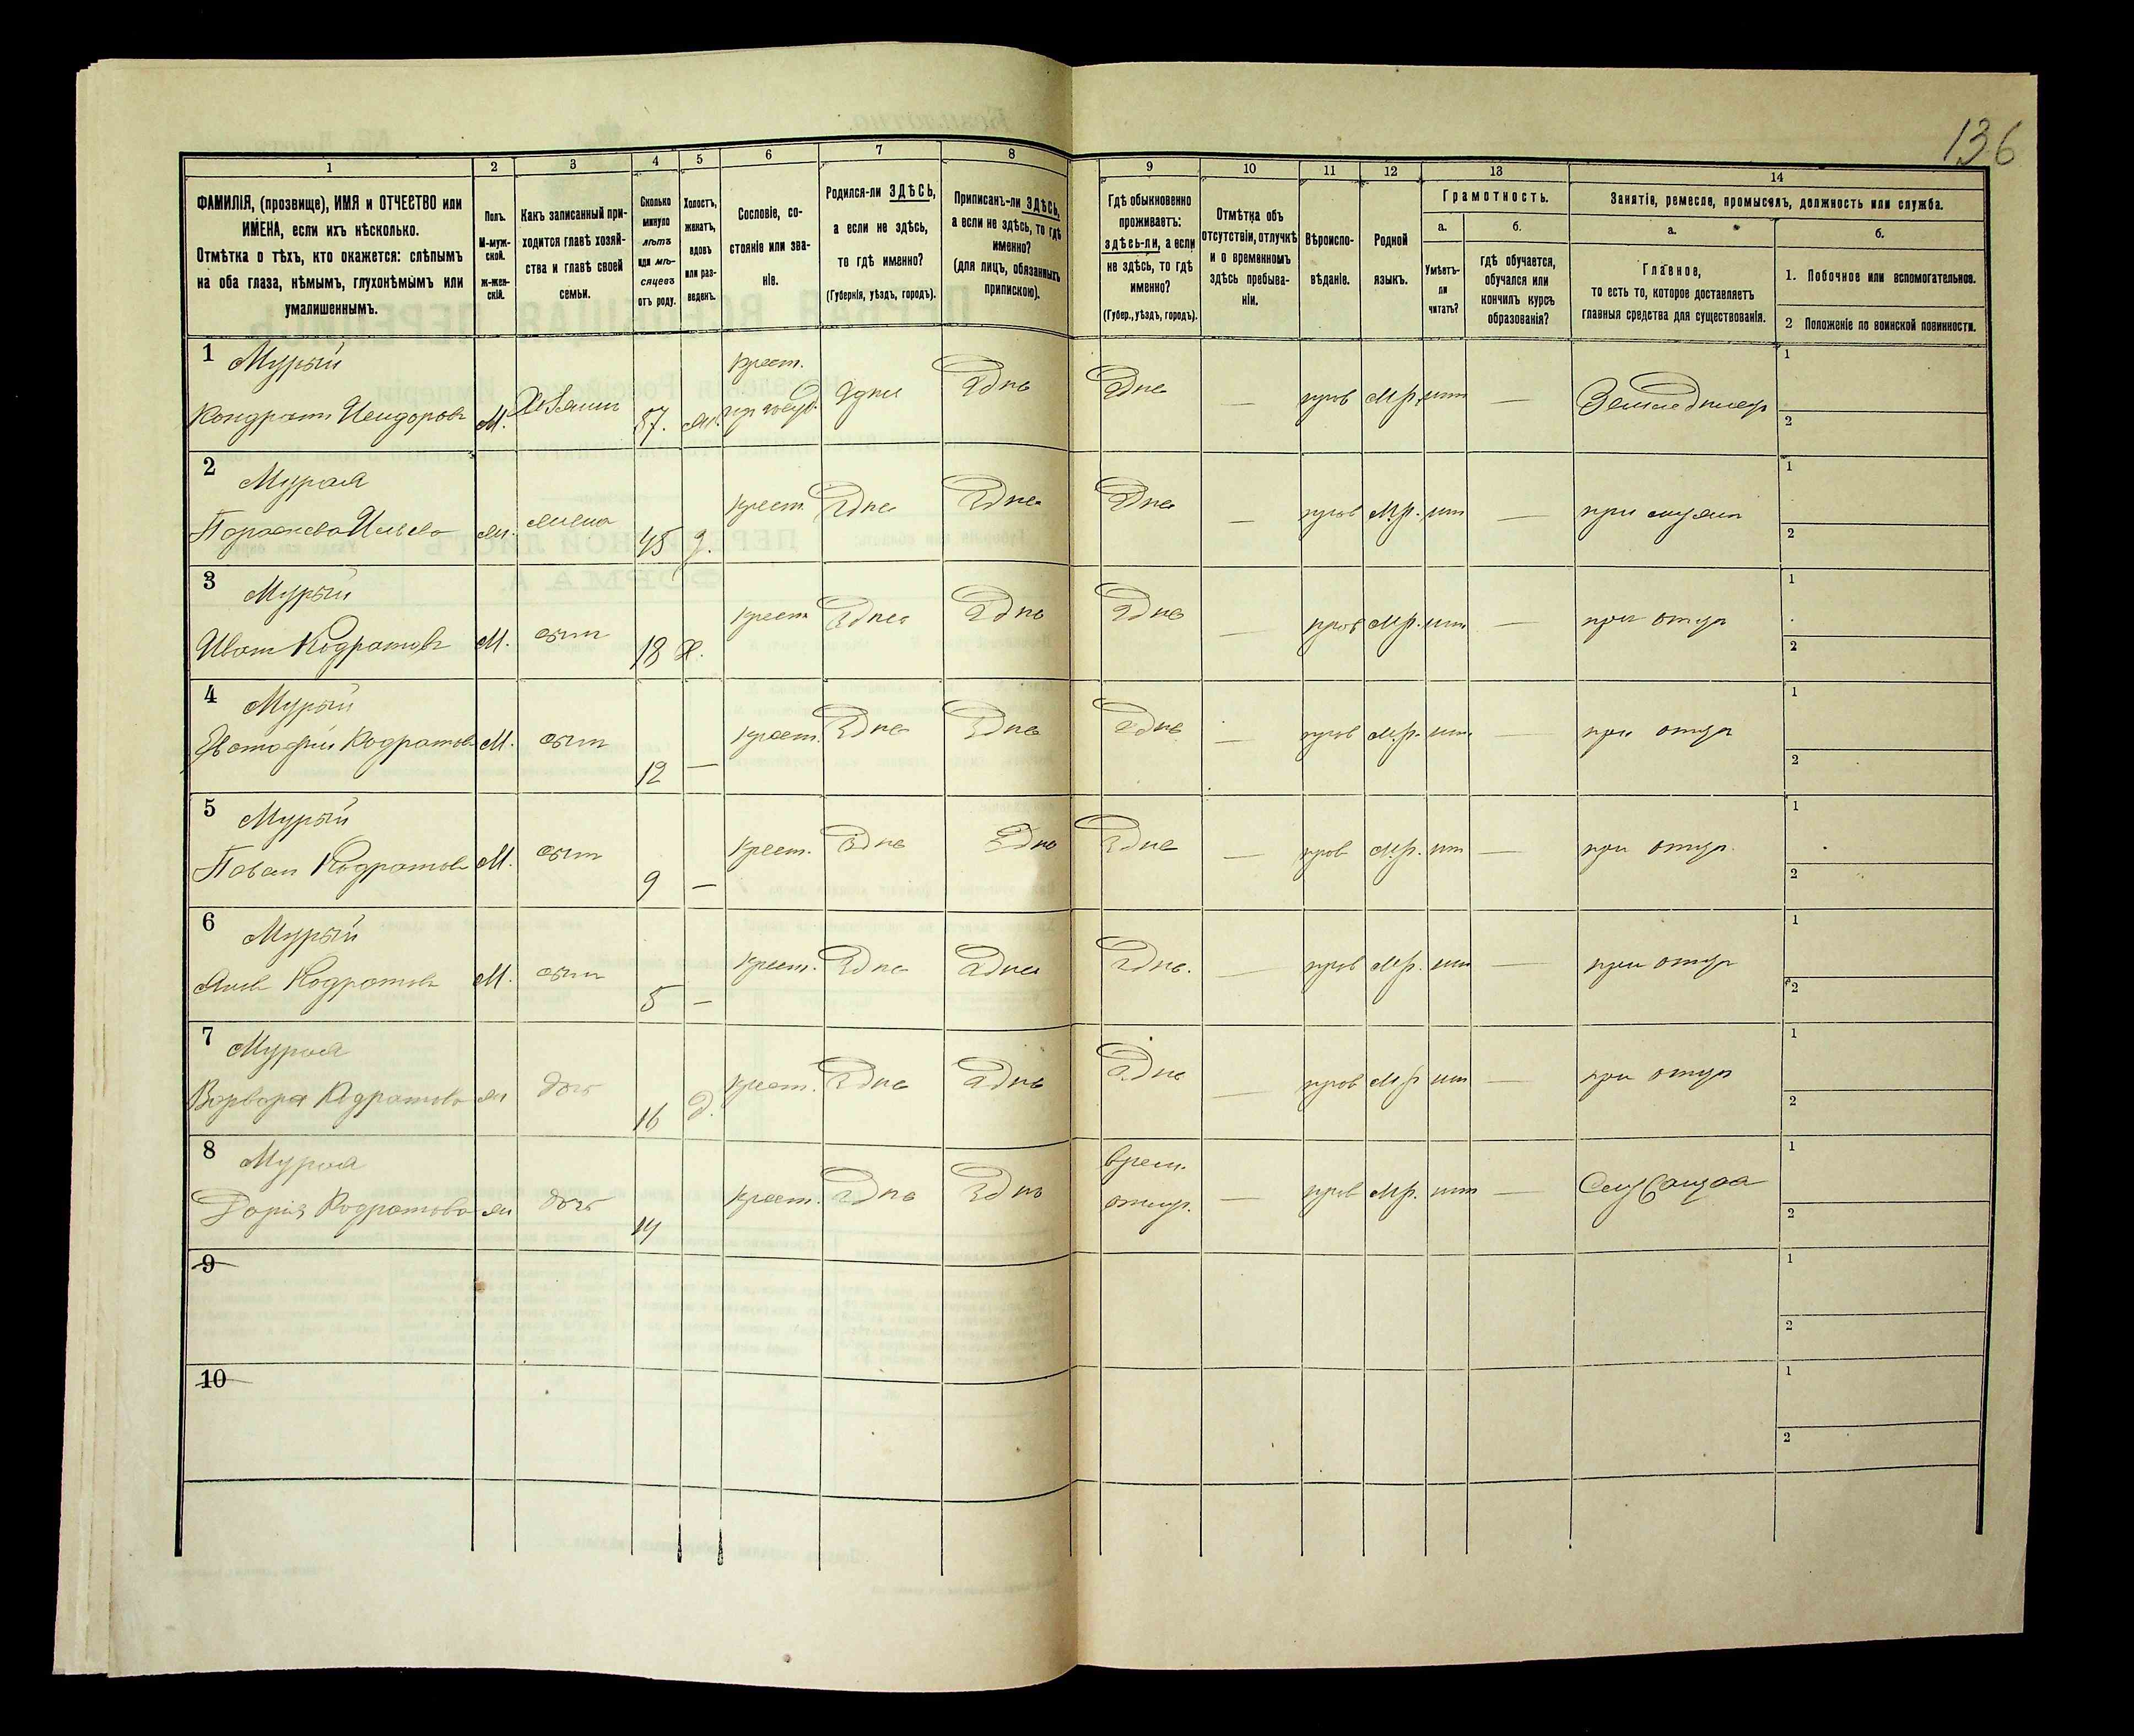 136
1
2
3
4
5
6
7
8
9
10
11
12
13
14
ФАМИЛІЯ, (прозвище), ИМЯ и ОТЧЕСТВО или
ИМЕНА, если ихъ нѣсколько.
Отмѣтка о тѣхъ, кто окажется: слѣпымъ
на оба глаза, нѣмымъ, глухонѣмымъ или
умалишеннымъ.
Полъ.
М-муж-
ской.
ж-жен-
скій.
Какъ записанный при-
ходится главѣ хозяй-
ства и главѣ своей
семьи.
Сколько
минуло
лѣтъ
или мѣ-
сяцевъ
отъ роду.
Холостъ,
женатъ,
вдовъ
или раз-
веденъ.
Сословіе, со-
стояніе или зва-
ніе.
Родился-ли ЗДѢСЬ,
а если не здѣсь,
то гдѣ именно?
(Губернія, уѣздъ, городъ).
Приписанъ-ли ЗДѢСЬ,
а если не здѣсь, то гдѣ
именно?
(для лицъ, обязанныхъ
припискою).
Гдѣ обыкновенно
проживаетъ:
здѣсь-ли, а если
не здѣсь, то гдѣ
именно?
(Губер., уѣздъ, городъ).
Отмѣтка объ
отсутствіи, отлучкѣ
и о временномъ
здѣсь пребыва-
ніи.
Вѣроиспо-
вѣданіе.
Родной
языкъ.
Грамотность.
а.
Умѣетъ-
ли
читать?
б.
гдѣ обучается,
обучался или
кончилъ курсъ
образованія?
Занятіе, ремесло, промыселъ, должность или служба.
а.
Главное,
то есть то, которое доставляетъ
главныя средства для существованія.
б.
1. Побочное или вспомогательное.
2 Положеніе по воинской повинности.
1 Мурый крест.
М. Хозяин 57. Здѣсь Здѣсь Здѣсь — прав м.р. нѣт — 1
2
2 Мурая
жена 45 крест Здѣсь Здѣсь Здѣсь — прав м.р. нѣт — при мужѣ 1
2
3 Мурый
Иван Кодратовъ М. сын 18 х. крест Здѣсь Здѣсь Здѣсь — прав м.р. нѣт — при отцѣ 1
2
4 Мурый
Кодратов М. сын 12 — крест. Здѣсь Здѣсь Здѣсь — прав м.р. нѣт — при отцѣ 1
2
5 Мурый
Павел Кодратов М. сын 9 — крест. Здѣсь Здѣсь Здѣсь — прав м.р. нѣт — при отцѣ 1
2
6 Мурый
Кодратов М. сын 5 — крест. Здѣсь Здѣсь Здѣсь. — прав м.р. нѣт — при отцѣ 1
2
7 Мурая
Варвара Кодратова ж дочь 16 д. крест. Здѣсь Здѣсь Здѣсь — прав м.р нѣт — при отцѣ 1
2
8 Мурая врем.
Дарія Кодратова ж дочь 14 крест. Здѣсь Здѣсь — прав м.р. нѣт — 1
2
9
1
2
10
1
2